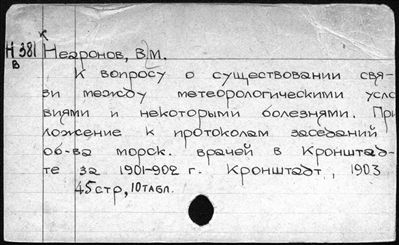 к
Н 381 Неаронов, В.М.
в
К вопросу о существовании свя-
зи между метеорологическими усло
виями и некоторыми болезнями. При
ложение к протоколам заседаний
об-ва морск. врачей в Кронштад-
те за 1901-902 г. Кронштадт, 1903
45стр, 10табл.